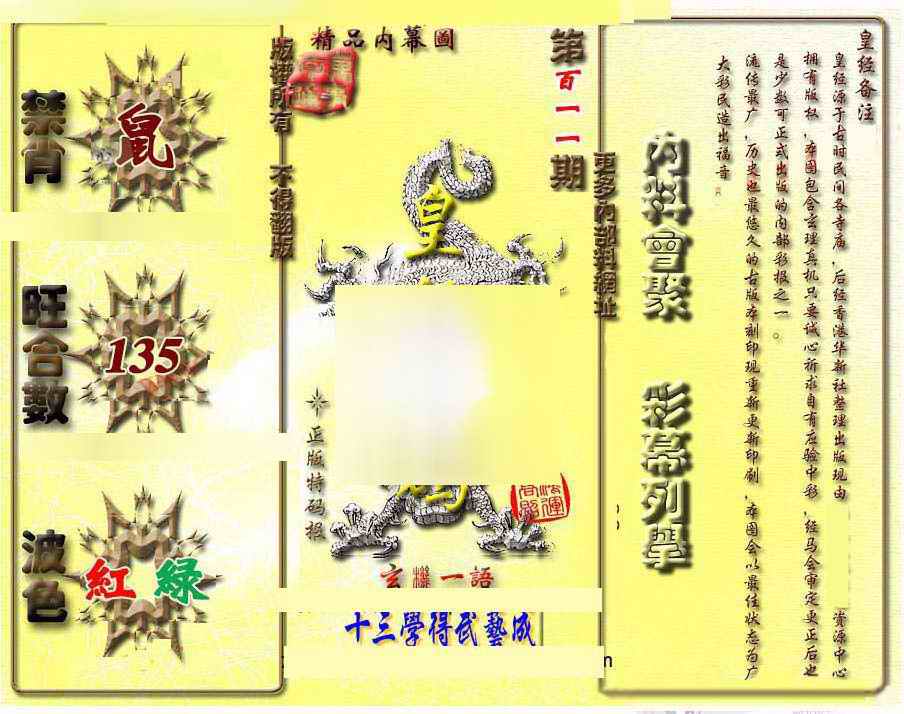 精品内幕圖
第百一一期
版權所有 不得翻版
更多內部料網址
禁肖
鼠
旺合數
135
波色
紅 綠
皇
正版特码报
玄機一語
十三學得武藝成
內料會聚 彩幕列擧
皇经备注
皇经源于古时民间各寺庙，后经香港华新社整理出版现由 资源中心
拥有版权，本图包含玄理真机只要诚心祈求自有应验中彩，经马会审定更正后也
是少数可正式出版的内部彩报之一。
流传最广，历史也最悠久的古版本刻印现重新更新印刷，本图会以最佳状态为广
大彩民造出福音